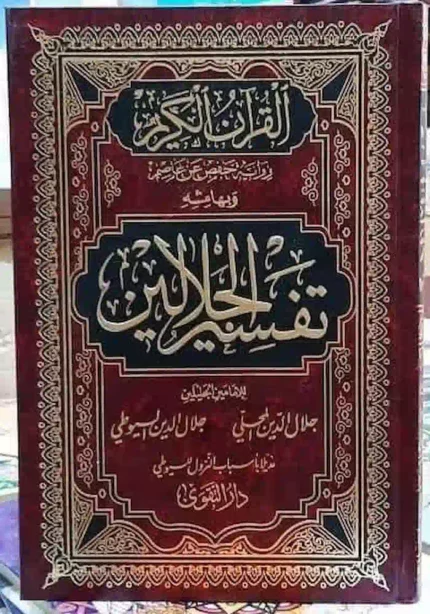 القرآن الكريم
رواية حفص عن عاصم
وبهامشه
تفسير الجلالين
للإمامين الجليلين
جلال الدين المحلي جلال الدين السيوطي
مذيلا بأسباب النزول للسيوطي
دار التقوى